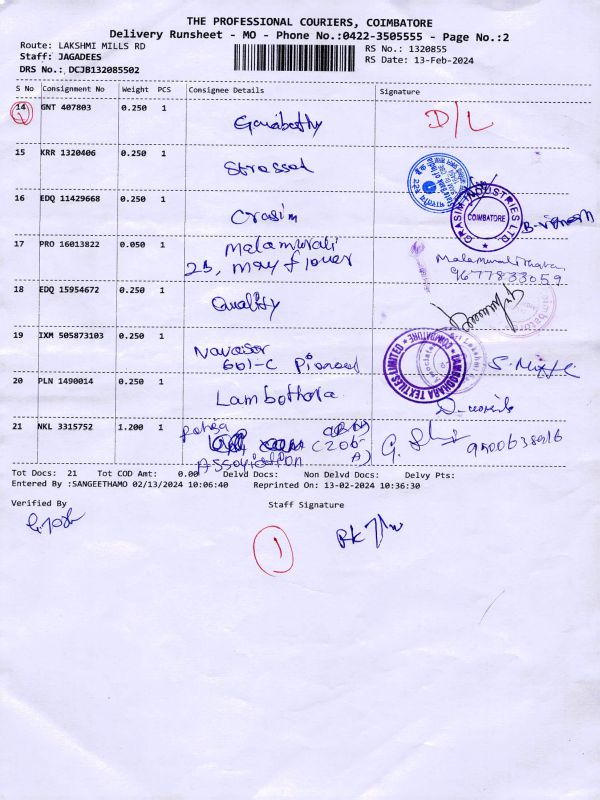 THE PROFESSIONAL COURIERS, COIMBATORE
Delivery Runsheet - MO - Phone No.:0422-3505555 - Page No.:2
Route: LAKSHMI MILLS RD
RS No.: 1320855
Staff: JAGADEES
RS Date: 13-Feb-2024
DRS No.: DCJB132085502
S No Consignment No Weight PCS Consignee Details Signature
14 GNT 407803 0.250 1 D/L
15 KRR 1320406 0.250 1
16 EDQ 11429668 0.250 1 Grasim
GRASIM INDUSTRIES LTD. COIMBATORE
17 PRO 16013822 0.050 1 Malamurali
23, may flower
9677833059
18 EDQ 15954672 0.250 1 Quality
19 IXM 505873103 0.250 1
601-C Pioneed
LAMBODHARA TEXTILES LIMITED COIMBATORE
20 PLN 1490014 0.250 1 Lambothara
21 NKL 3315752 1.200 1
Tot Docs: 21 Tot COD Amt: 0.00 Delvd Docs: Non Delvd Docs: Delvy Pts:
Entered By :SANGEETHAMO 02/13/2024 10:06:40 Reprinted On: 13-02-2024 10:36:30
Verified By Staff Signature
1